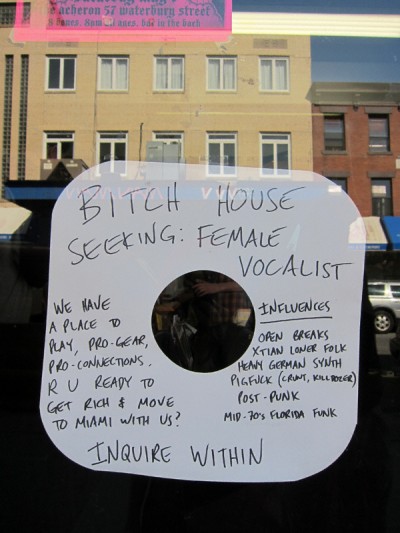 Saturday May
e acheron 57 waterbury street
8 bones. 8pm all ages, bar in the back
BITCH HOUSE
SEEKING: FEMALE
VOCALIST
WE HAVE
A PLACE TO
PLAY, PRO-GEAR,
PRO-CONNECTIONS.
R U READY TO
GET RICH & MOVE
TO MIAMI WITH US?
INFLUENCES
OPEN BREAKS
XTIAN LONER FOLK
HEAVY GERMAN SYNTH
PIGFUCK (CRUNT, KILLDOZER)
POST-PUNK
MID-70'S FLORIDA FUNK
INQUIRE WITHIN